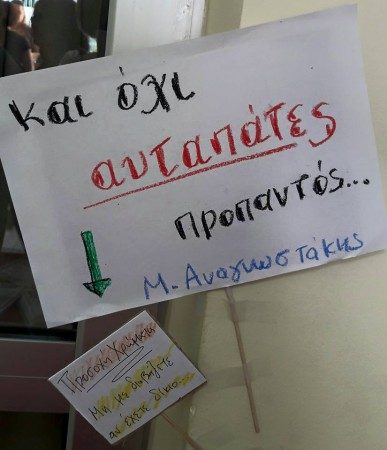 και όχι
αυταπάτες
προπαντός...
Μ. Αναγνωστάκης
Προσοχή Χρώματα
Μη με διαβάζετε
αν έχετε δίκιο...